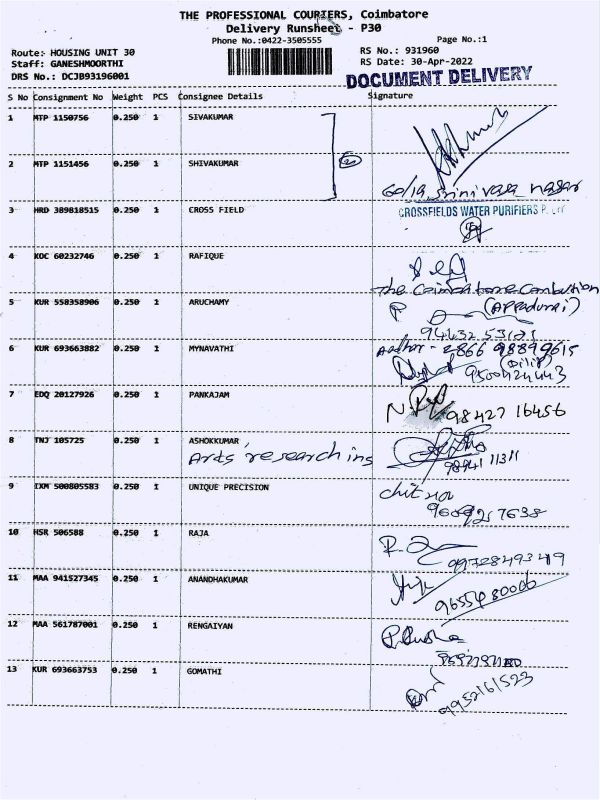 THE PROFESSIONAL COURIERS, Coimbatore
Delivery Runsheet - P30
Phone No.:0422-3505555
Page No.:1
Route: HOUSING UNIT 30
RS No.: 931960
Staff: GANESHMOORTHI
RS Date: 30-Apr-2022
DRS No.: DCJB93196001
DOCUMENT DELIVERY
S No Consignment No Weight PCS Consignee Details Signature
1 MTP 1150756 0.250 1 SIVAKUMAR
2 MTP 1151456 0.250 1 SHIVAKUMAR
60/19, srinivasa nagar
3 HRD 389818515 0.250 1 CROSS FIELD CROSSFIELDS WATER PURIFIERS P.
4 KOC 60232746 0.250 1 RAFIQUE
The Coimbatore Combution
5 KUR 558358906 0.250 1 ARUCHAMY (APPadurai)
94432 53121
6 KUR 693663882 0.250 1 MYNAVATHI Aadhar - 2866 98899615
(Dilip)
9500424443
7 EDQ 20127926 0.250 1 PANKAJAM 98427 16456
8 TNJ 105725 0.250 1 ASHOKKUMAR
Arts researching 98941 11311
9 IXM 500805583 0.250 1 UNIQUE PRECISION
10 HSR 506588 0.250 1 RAJA
9972849349
11 MAA 941527345 0.250 1 ANANDHAKUMAR
12 MAA 561787001 0.250 1 RENGAIYAN
13 KUR 693663753 0.250 1 GOMATHI 9952161523